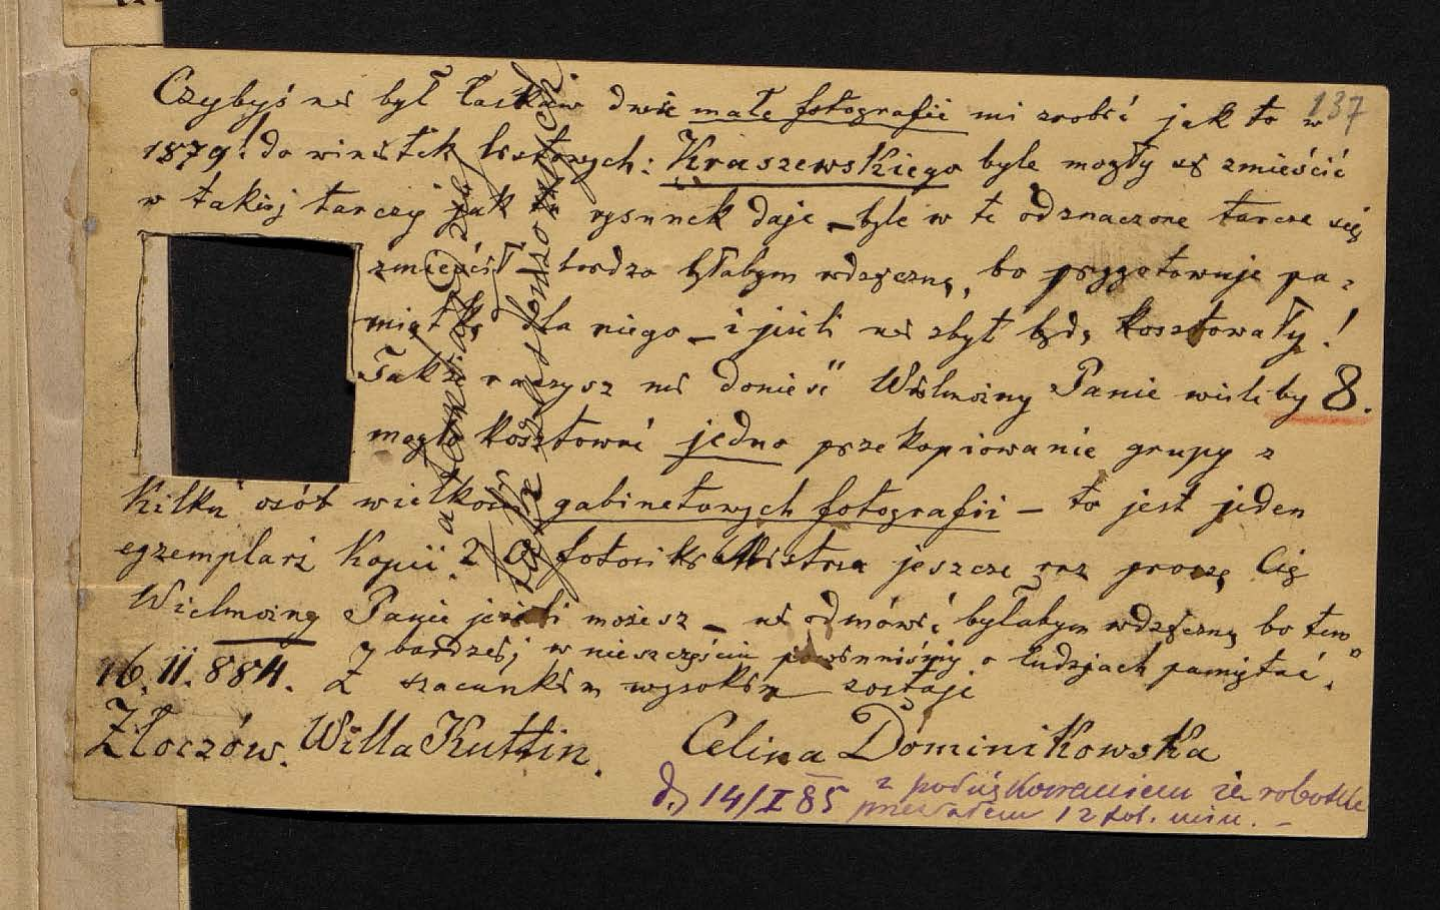 137
Czybyś nie był łaskaw dwie małe fotografii mi zrobić jak to w
1879! do winietek listowych: Kraszewskiego byle mogły się zmieścić
w takiej tarczy jak rysunek daje – byle w te odznaczone tarcze się
zmieścił bardzo byłabym wdzięczną, bo przygotowuje pa-
miątkę dla niego – i jeśli nie zbyt będą kosztowały!
Także raczysz mi donieść Wielmożny Panie wieleby 8.
mogło kosztować jedno przekopiowanie grupy z
Kilku osób wielkości gabinetowych fotografii – to jest jeden
egzemplarz Kopii?
jeszcze raz proszę Cię
Wielmożny Panie jeżeli możesz – nie odmówić byłabym wdzięczną bo tem
bardziej w nieszczęściu powinniśmy o ludziach pamiętać.
16. II. 884. Z szacunkiem wysokim zostaje
Złoczów. Willa Kuttin. Celina Dominikowska
d. 14/I 85 z podziękowaniem za
12 fot. min. –